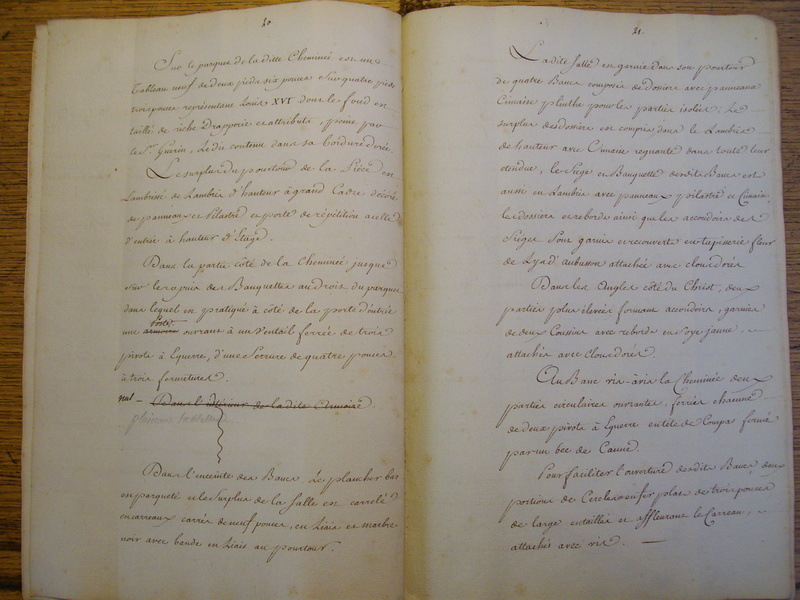 20
Sur le parquet de la ditte Cheminée est un
Tableau neuf de deux pieds six pouces sur quatre pieds
trois pouces représentant Louis XVI dont le fond est
taillé de riche Drapperie et attributs, peint par
le Sr. Guerin, Le dit contenu dans sa bordure dorée.
Le surplus du pourtour de la Piéce est
Lambrissé de Lambris d'hauteur à grand Cadre décoré
de panneaux et Pilastre et porte de répétition a celle
d'entrée à hauteur d'Etage.
Dans la partie côté de la Cheminée jusque
sur les apuis des Banquettes au droit du parquet
dans lequel est pratiqué à côté de la porte d'entrée
une armoire Porte ouvrant à un Ventail ferrée de trois
pivots à Equerre, d'une Serrure de quatre pouces
à trois fermetures.
nul - Dans l'intérieur de la dite Armoire
plusieurs tablettes
Dans l'enceinte des Bancs Le plancher bas
en parqueté et le Surplus de la Salle est carrelé
en carreaux carrés de neuf pouces, en Liais et marbre
noir avec bande en Liais au pourtour.
21
La dite Salle est garnie dans son pourtour
de quatre Bancs composés de dossiers avec panneaux
Cimaise plinthe pour les parties isolées, Le
surplus des dossiers est compris dans le Lambris
de hauteur avec Cimaise regnante dans toute leur
étendue, le Siége et Banquette desdits Bancs est
aussi en Lambris avec panneaux pilastre et Cimaise
les dossiers et rebords ainsi que les accoudoirs des
Sièges Sont garnis et recouvert en tapisserie fleur
de Lys d'aubusson attachée avec clous dorés
Dans les Angles côté du Christ, deux
parties plus élevées formant accoudoirs, garnies
de deux Coussins avec rebords en Soye jaune
attachés avec Clous dorés.
Au Banc vis-à-vis la Cheminée deux
parties circulaires ouvrantes, ferrées chacune
de deux pivots à Equerre en tête de Compas fermé
par un bec de Canne.
Pour faciliter l'ouverture desdits Bancs deux
portions de Cercles en fer plat de trois pouces
de large entaillés et affleurant le Carreau,
attachés avec vis.